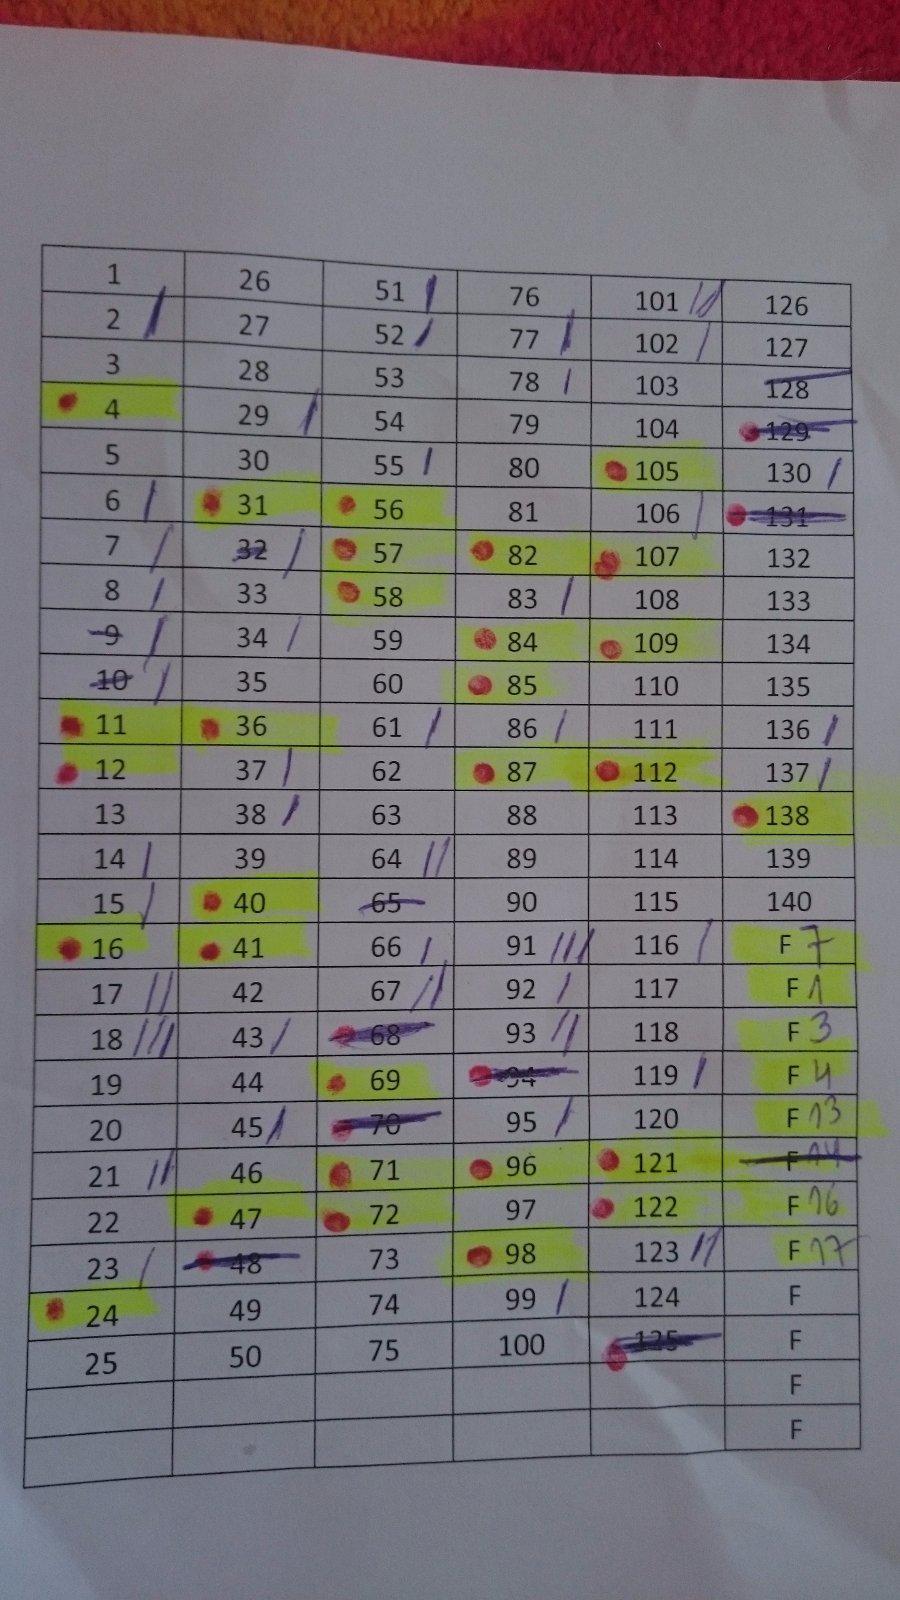 1 26 51 / 76 101 // 126
2 / 27 52 / 77 / 102 / 127
3 28 53 78 / 103 128
4 29 / 54 79 104 129
5 30 55 / 80 105 130 /
6 / 31 56 81 106 / 131
7 / 32 / 57 82 107 132
8 / 33 58 83 / 108 133
9 / 34 / 59 84 109 134
10 / 35 60 85 110 135
11 36 61 / 86 / 111 136 /
12 37 / 62 87 112 137 /
13 38 / 63 88 113 138
14 / 39 64 // 89 114 139
15 / 40 65 90 115 140
16 41 66 / 91 /// 116 / F 7
17 // 42 67 // 92 / 117 F 1
18 /// 43 / 68 93 // 118 F 3
19 44 69 94 119 / F 4
20 45 / 70 95 / 120 F 13
21 // 46 71 96 121 F 14
22 47 72 97 122 F 16
23 / 48 73 98 123 // F 17
24 49 74 99 / 124 F
25 50 75 100 125 F
F
F